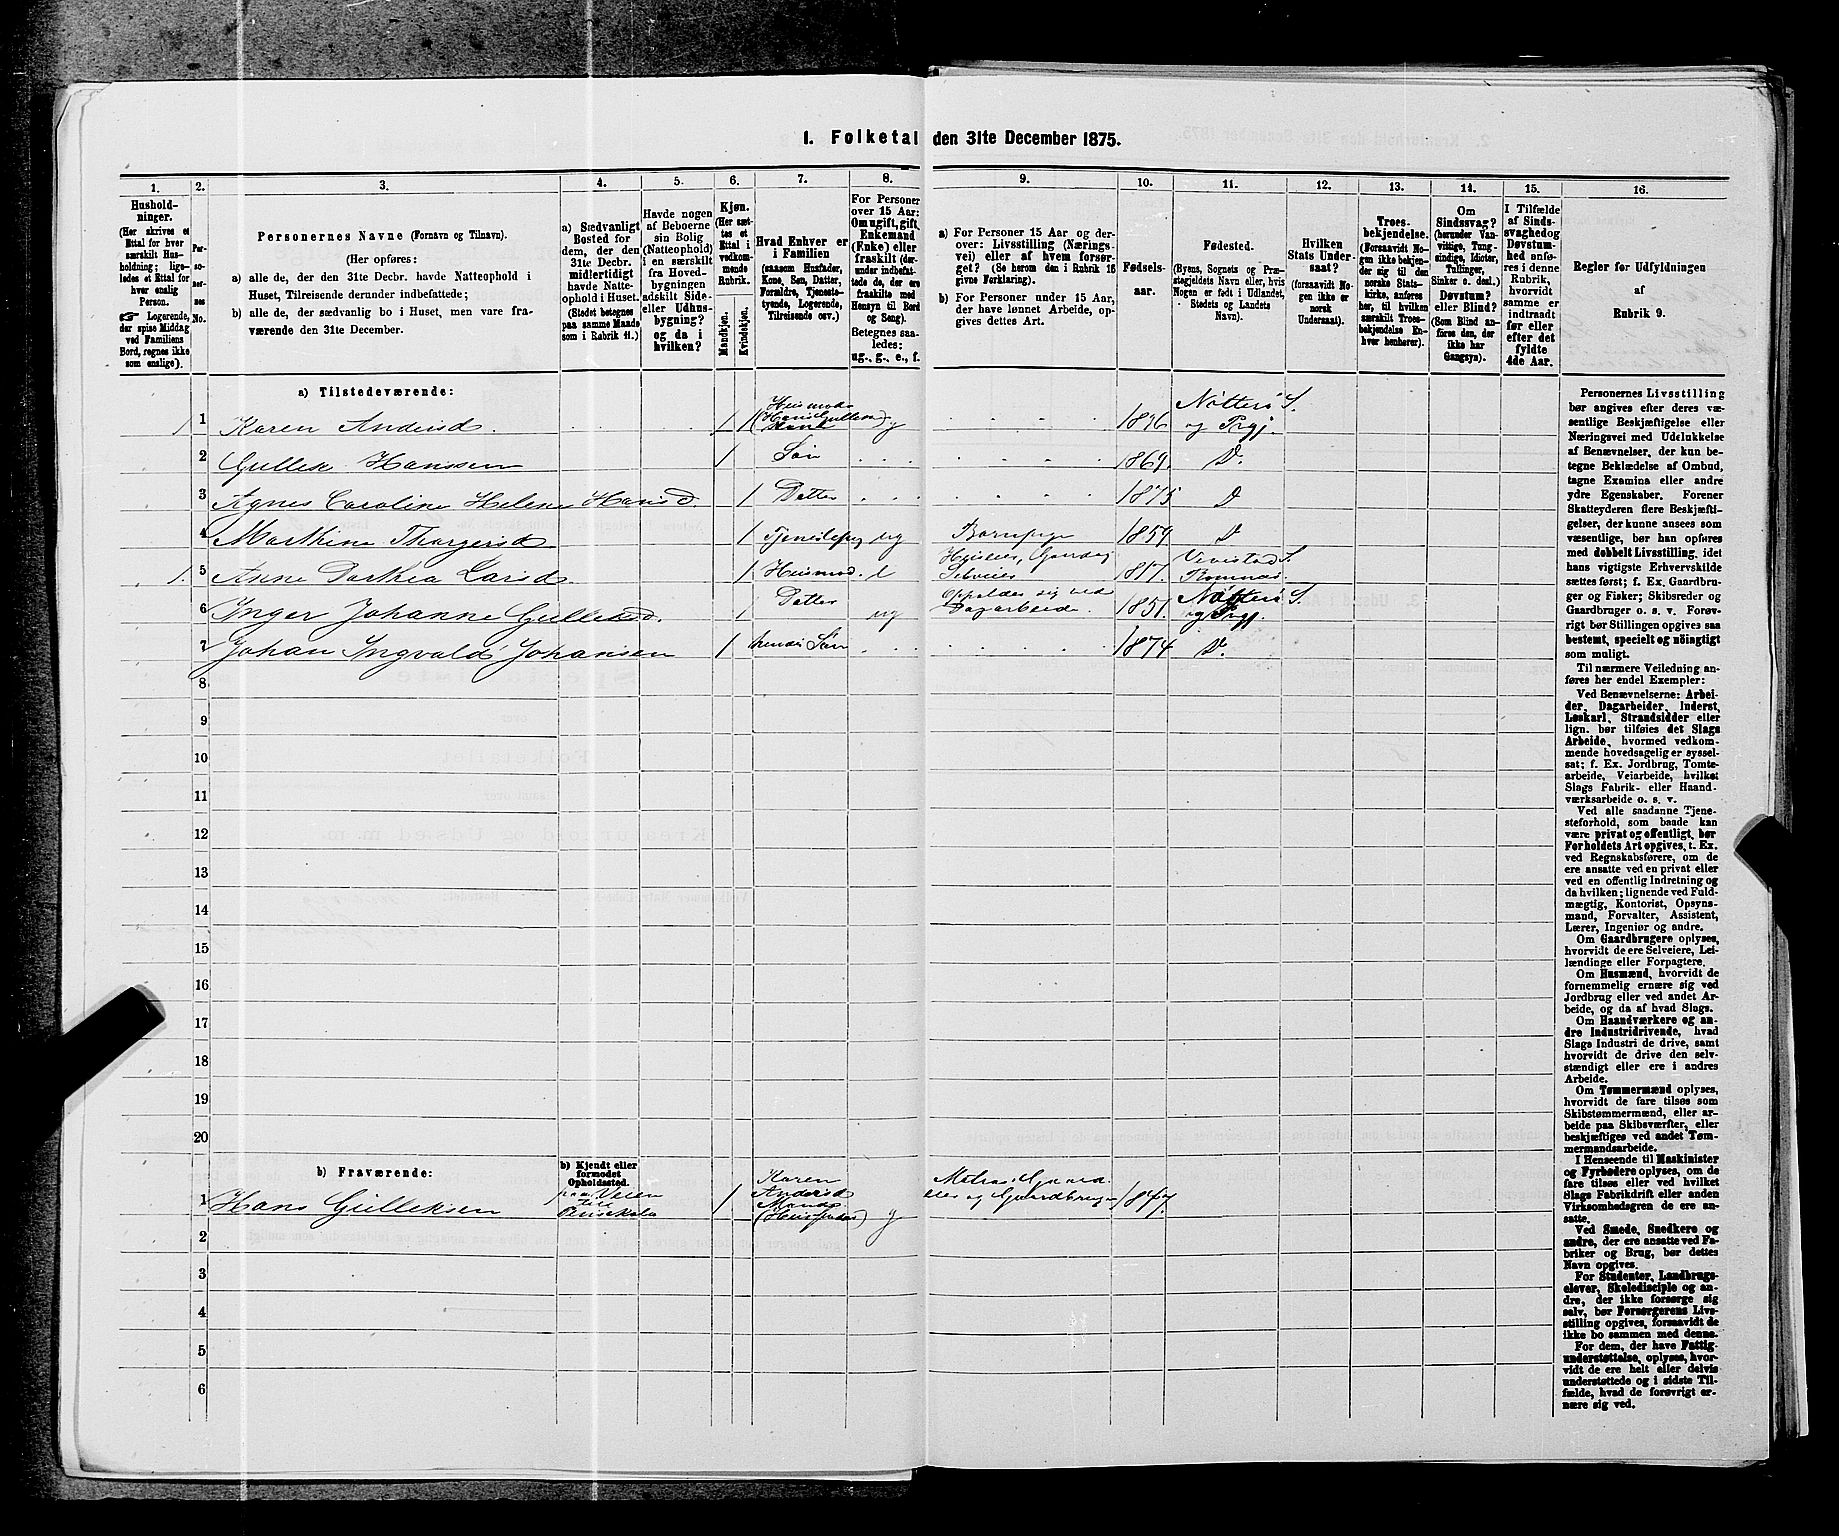 1. Folketal den 31te December 1875.
1.
2.
3.
4.
5.
6.
7.
8.
9.
10.
11.
12.
13.
14.
15.
16.
Hushold-
ninger.
(Her skrives et
Ettal for hver
særskilt Hus-
holdning; lige-
ledes et Ettal for
hver enslig
Person.
☞ Logerende,
der spise Middag
ved Familiens
Bord, regnes ikke
som enslige).
Per-
so-
ner-
nes
No.
Personernes Navne (Fornavn og Tilnavn).
(Her opføres:
a) alle de, der den 31te Decbr. havde Natteophold i
Huset, Tilreisende derunder indbefattede;
b) alle de, der sædvanlig bo i Huset, men vare fra-
værende den 31te December.
a) Sædvanligt
Bosted for
dem, der den
31te Decbr.
midlertidigt
havde Natte-
ophold i Huset.
(Stedet betegnes
paa samme Maade
som i Rubrik 11.)
Havde nogen
af Beboerne
sin Bolig
(Natteophold)
i en særskilt
fra Hoved-
bygningen
adskilt Side-
eller Udhus-
bygning?
og da i
hvilken?
Kjøn.
(Her sæt-
tes et
Ettal i
vedkom-
mende
Rubrik.
Mandkjøn.
Kvindekjøn.
Hvad Enhver er
i Familien
(saasom Husfader,
Kone, Søn, Datter,
Forældre, Tjeneste-
tyende, Logerende,
Tilreisende osv.)
For Personer
over 15 Aar:
Om ugift, gift,
Enkemand
(Enke) eller
fraskilt (der-
under indbefat-
tede de, der ere
fraskilte med
Hensyn til Bord
og Seng).
Betegnes saa-
ledes:
ug., g., e., f.
a) For Personer 15 Aar og der-
over: Livsstilling (Nærings-
vei) eller af hvem forsør-
get? (Se herom den i Rubrik 16
givne Forklaring).
b) For Personer under 15 Aar,
der have lønnet Arbeide, op-
gives dettes Art.
Fødsels-
aar.
Fødested.
(Byens, Sognets og Præ-
stegjeldets Navn eller, hvis
Nogen er født i Udlandet,
Stedets og Landets
Navn).
Hvilken
Stats Under-
saat?
(forsaavidt No-
gen ikke er
norsk
Undersaat).
Troes-
bekjendelse.
(Forsaavidt No-
gen ikke bekjen-
der sig til den
norske Stats-
kirke, anføres
her, til hvilken
særskilt Troes-
bekjendelse En-
hver henhører).
Om
Sindssvag?
(herunder Van-
vittige, Tung-
sindige, Idioter,
Tullinger,
Sinker o. desl.)
Døvstum?
eller Blind?
(Som Blind an-
føres den, der
ikke har
Gangsyn).
I Tilfælde
af Sinds-
svaghed og
Døvstum-
hed anfø-
res i denne
Rubrik,
hvorvidt
samme er
indtraadt
før eller
efter det
fyldte
4de Aar.
Regler for Udfyldningen
af
Rubrik 9.
a) Tilstedeværende:
1 1 Karen Andersd. 1 g 1846 Nötterö S. og Prgj.
2 Gullek Hanssen 1 Søn 1869. D.
3 Agnes Caroline Helene Hansd. 1 Datter 1875 D
4 Marthine Thorgersd 1 ug Barnepige 1859 D
1. 5 Anne Dorthea Larsd 1 Husmod. 1817.
6 Inger Johanne Gulleksd. 1 Datter ug Opholder sig ved Dagarbeide. 1851. Nötterö S. og Prgj.
7 Johan Ingvald Johansen 1 hendes Søn 1874 D.
8
9
10
11
12
13
14
15
16
17
18
19
20
b) Fraværende:
b) Kjendt eller
formodet
Opholdssted.
1 Hans Gulleksen paa Veien til 1 Karen Andersd Mand g og Gaardbruger 1847.
2
3
4
5
6
Personernes Livsstilling
bør angives efter deres væ-
sentlige Beskjæftigelse eller
Næringsvei med Udelukkelse
af Benævnelser, der kun be-
tegne Beklædelse af Ombud,
tagne Examina eller andre
ydre Egenskaber. Forener
Skatteyderen flere Beskjæfti-
gelser, der kunne ansees som
væsentlige, bør han opføres
med dobbelt Livsstilling, idet
hans vigtigste Erhvervskilde
sættes først; f. Ex. Gaardbru-
ger og Fisker; Skibsreder og
Gaardbruger o. s. v. Forøv-
rigt bør Stillingen opgives saa
bestemt, specielt og nöiagtigt
som muligt.
Til nærmere Veiledning an-
føres her endel Exempler:
Ved Benævnelserne: Arbei-
der, Dagarbeider, Inderst,
Løskarl, Strandsidder eller
lign. bør tilføies det Slags
Arbeide, hvormed vedkom-
mende hovedsagelig er syssel-
sat; f. Ex. Jordbrug, Tomte-
arbeide, Veiarbeide, hvilket
Slags Fabrik- eller Haand-
værksarbeide o. s. v.
Ved alle saadanne Tjene-
steforhold, som baade kan
være privat og offentligt, bør
Forholdets Art opgives, t. Ex.
ved Regnskabsførere, om de
ere ansatte ved en privat eller
ved en offentlig Indretning og
da hvilken; lignende ved Fuld-
mægtig, Kontorist, Opsyns-
mand, Forvalter, Assistent,
Lærer, Ingeniør og andre.
Om Gaardbrugere oplyses,
hvorvidt de ere Selveiere, Lei-
lændinge eller Forpagtere.
Om Husmænd, hvorvidt de
fornemmelig ernære sig ved
Jordbrug eller ved andet Ar-
beide, og da af hvad Slags.
Om Haandværkere og an-
dre Industridrivende, hvad
Slags Industri de drive, samt
hvorvidt de drive den selv-
stændigt eller ere i andres
Arbeide.
Om Tømmermænd oplyses,
hvorvidt de fare tilsøs som
Skibstømmermænd, eller ar-
beide paa Skibsværfter, eller
beskjæftiges ved andet Tøm-
mermandsarbeide.
I Henseende til Maskinister
og Fyrbødere oplyses, om de
fare tilsøs eller ved hvilket
Slags Fabrikdrift eller anden
Virksomhedsgren de ere an-
satte.
Ved Smede, Snedkere og
andre, der ere ansatte ved Fa-
briker og Brug, bør dettes
Navn opgives.
For Studenter, Landbrugs-
elever, Skoledisciple og an-
dre, der ikke forsørge sig
selv, bør Forsørgerens Livs-
stilling opgives, forsaavidt de
ikke bo sammen med denne.
For dem, der have Fattig-
understøttelse, oplyses, hvor-
vidt de ere helt eller delvis
understøttede og i sidste Til-
fælde, hvad de forøvrigt er-
nære sig ved.